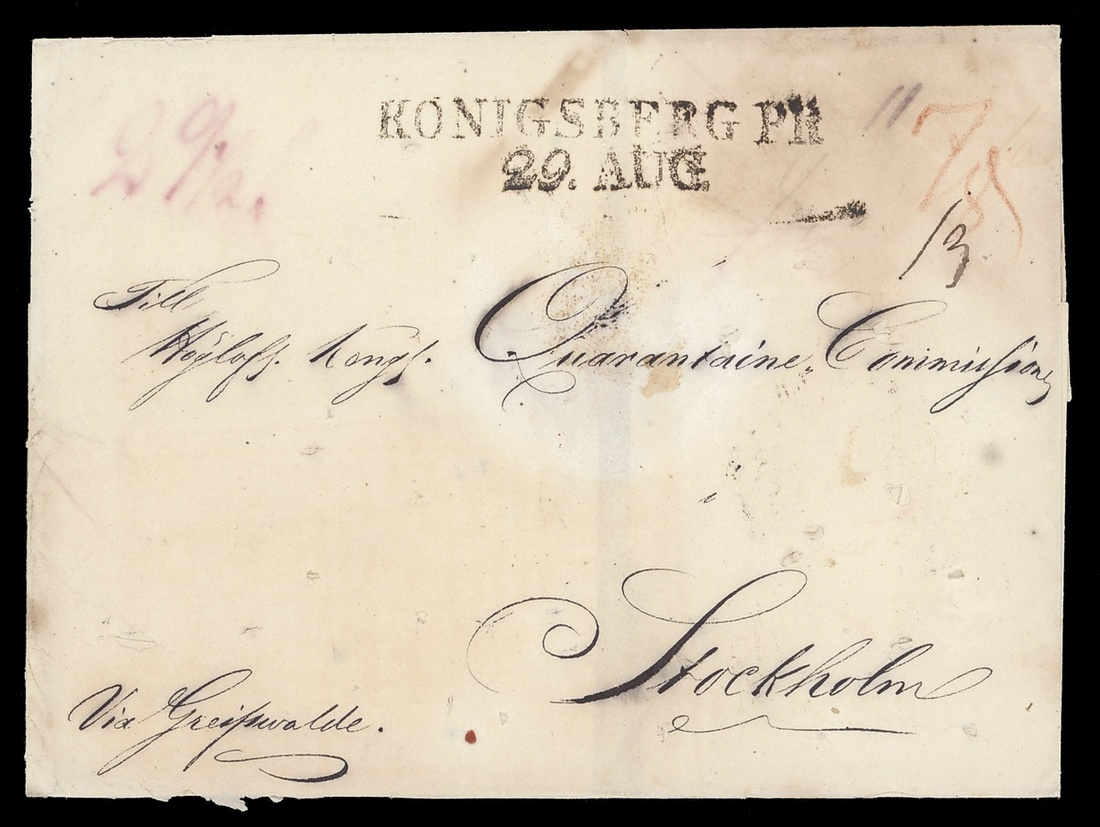 KONIGSBERG PR
29. AUG.
13
Till
Höglofl. Kongl. Quarantaine Commissionen
Stockholm
Via Greifswalde.